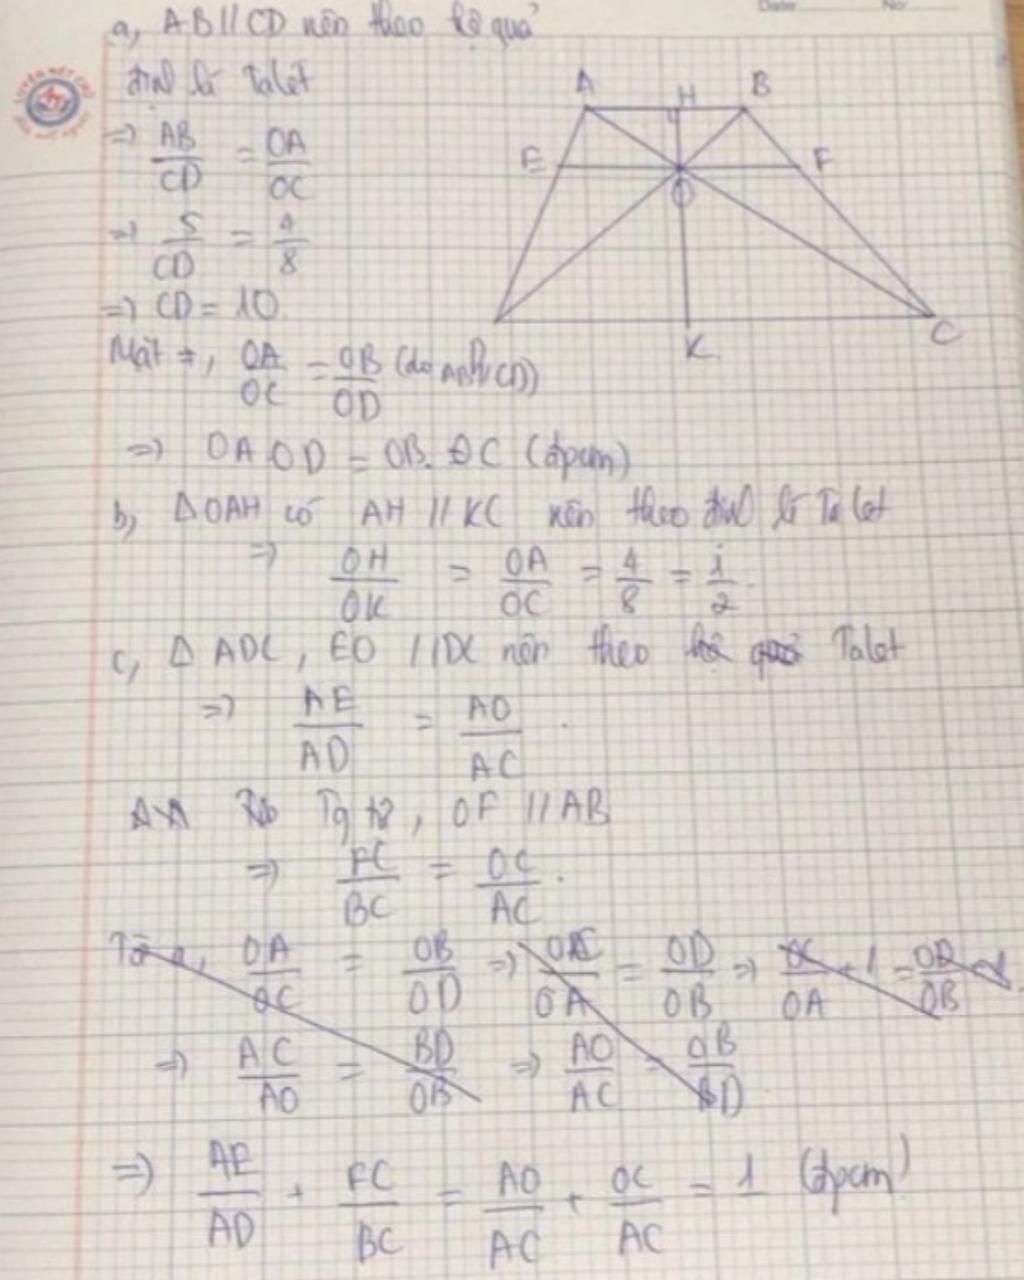 a, AB // CD nên theo hệ quả
định lí Talet
=> AB/CD = OA/OC
=> 5/CD = 4/8
=> CD = 10
Mặt ≠, OA/OC = OB/OD (do AB//CD)
=> OA.OD = OB.OC (đpcm)
b, Δ OAH có AH // KC nên theo định lí Talet
=> OH/OK = OA/OC = 4/8 = 1/2.
c, Δ ADC, EO // DC nên theo hệ quả Talet
=> AE/AD = AO/AC.
Tg tự, OF // AB
=> FC/BC = OC/AC.
Từ a, OA/OC = OB/OD => OC/OA = OD/OB => OC/OA + 1 = OD/OB + 1
=> AC/AO = BD/OB => AO/AC = OB/BD
=> AE/AD + FC/BC = AO/AC + OC/AC = 1 (đpcm)
A H B
E F
O
K C